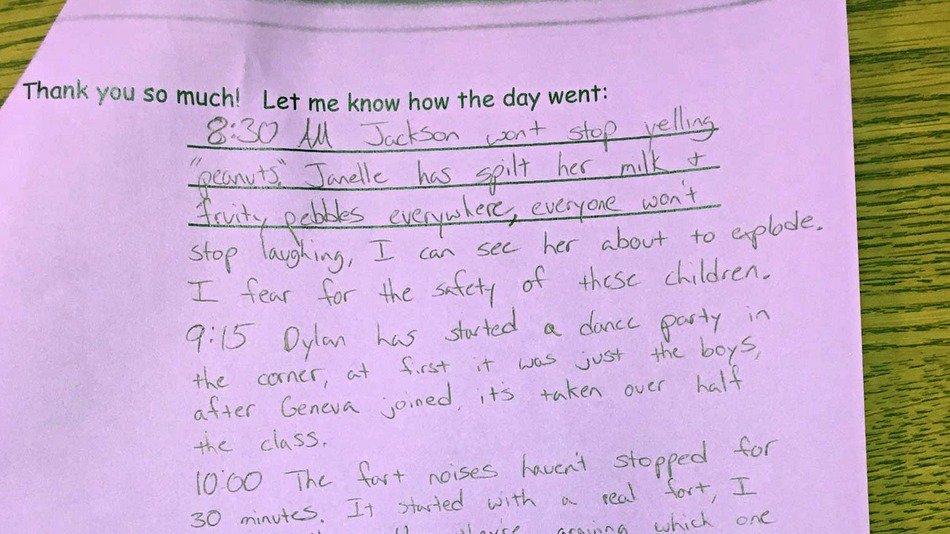 Thank you so much! Let me know how the day went:
8:30 AM Jackson wont stop yelling
"peanuts." Janelle has spilt her milk +
fruity pebbles everywhere, everyone won't
stop laughing, I can see her about to explode.
I fear for the safety of these children.
9:15 Dylan has started a dance party in
the corner, at first it was just the boys,
after Geneva joined, it's taken over half
the class.
10:00 The fart noises haven't stopped for
30 minutes. It started with a real fart, I
they're arguing which one